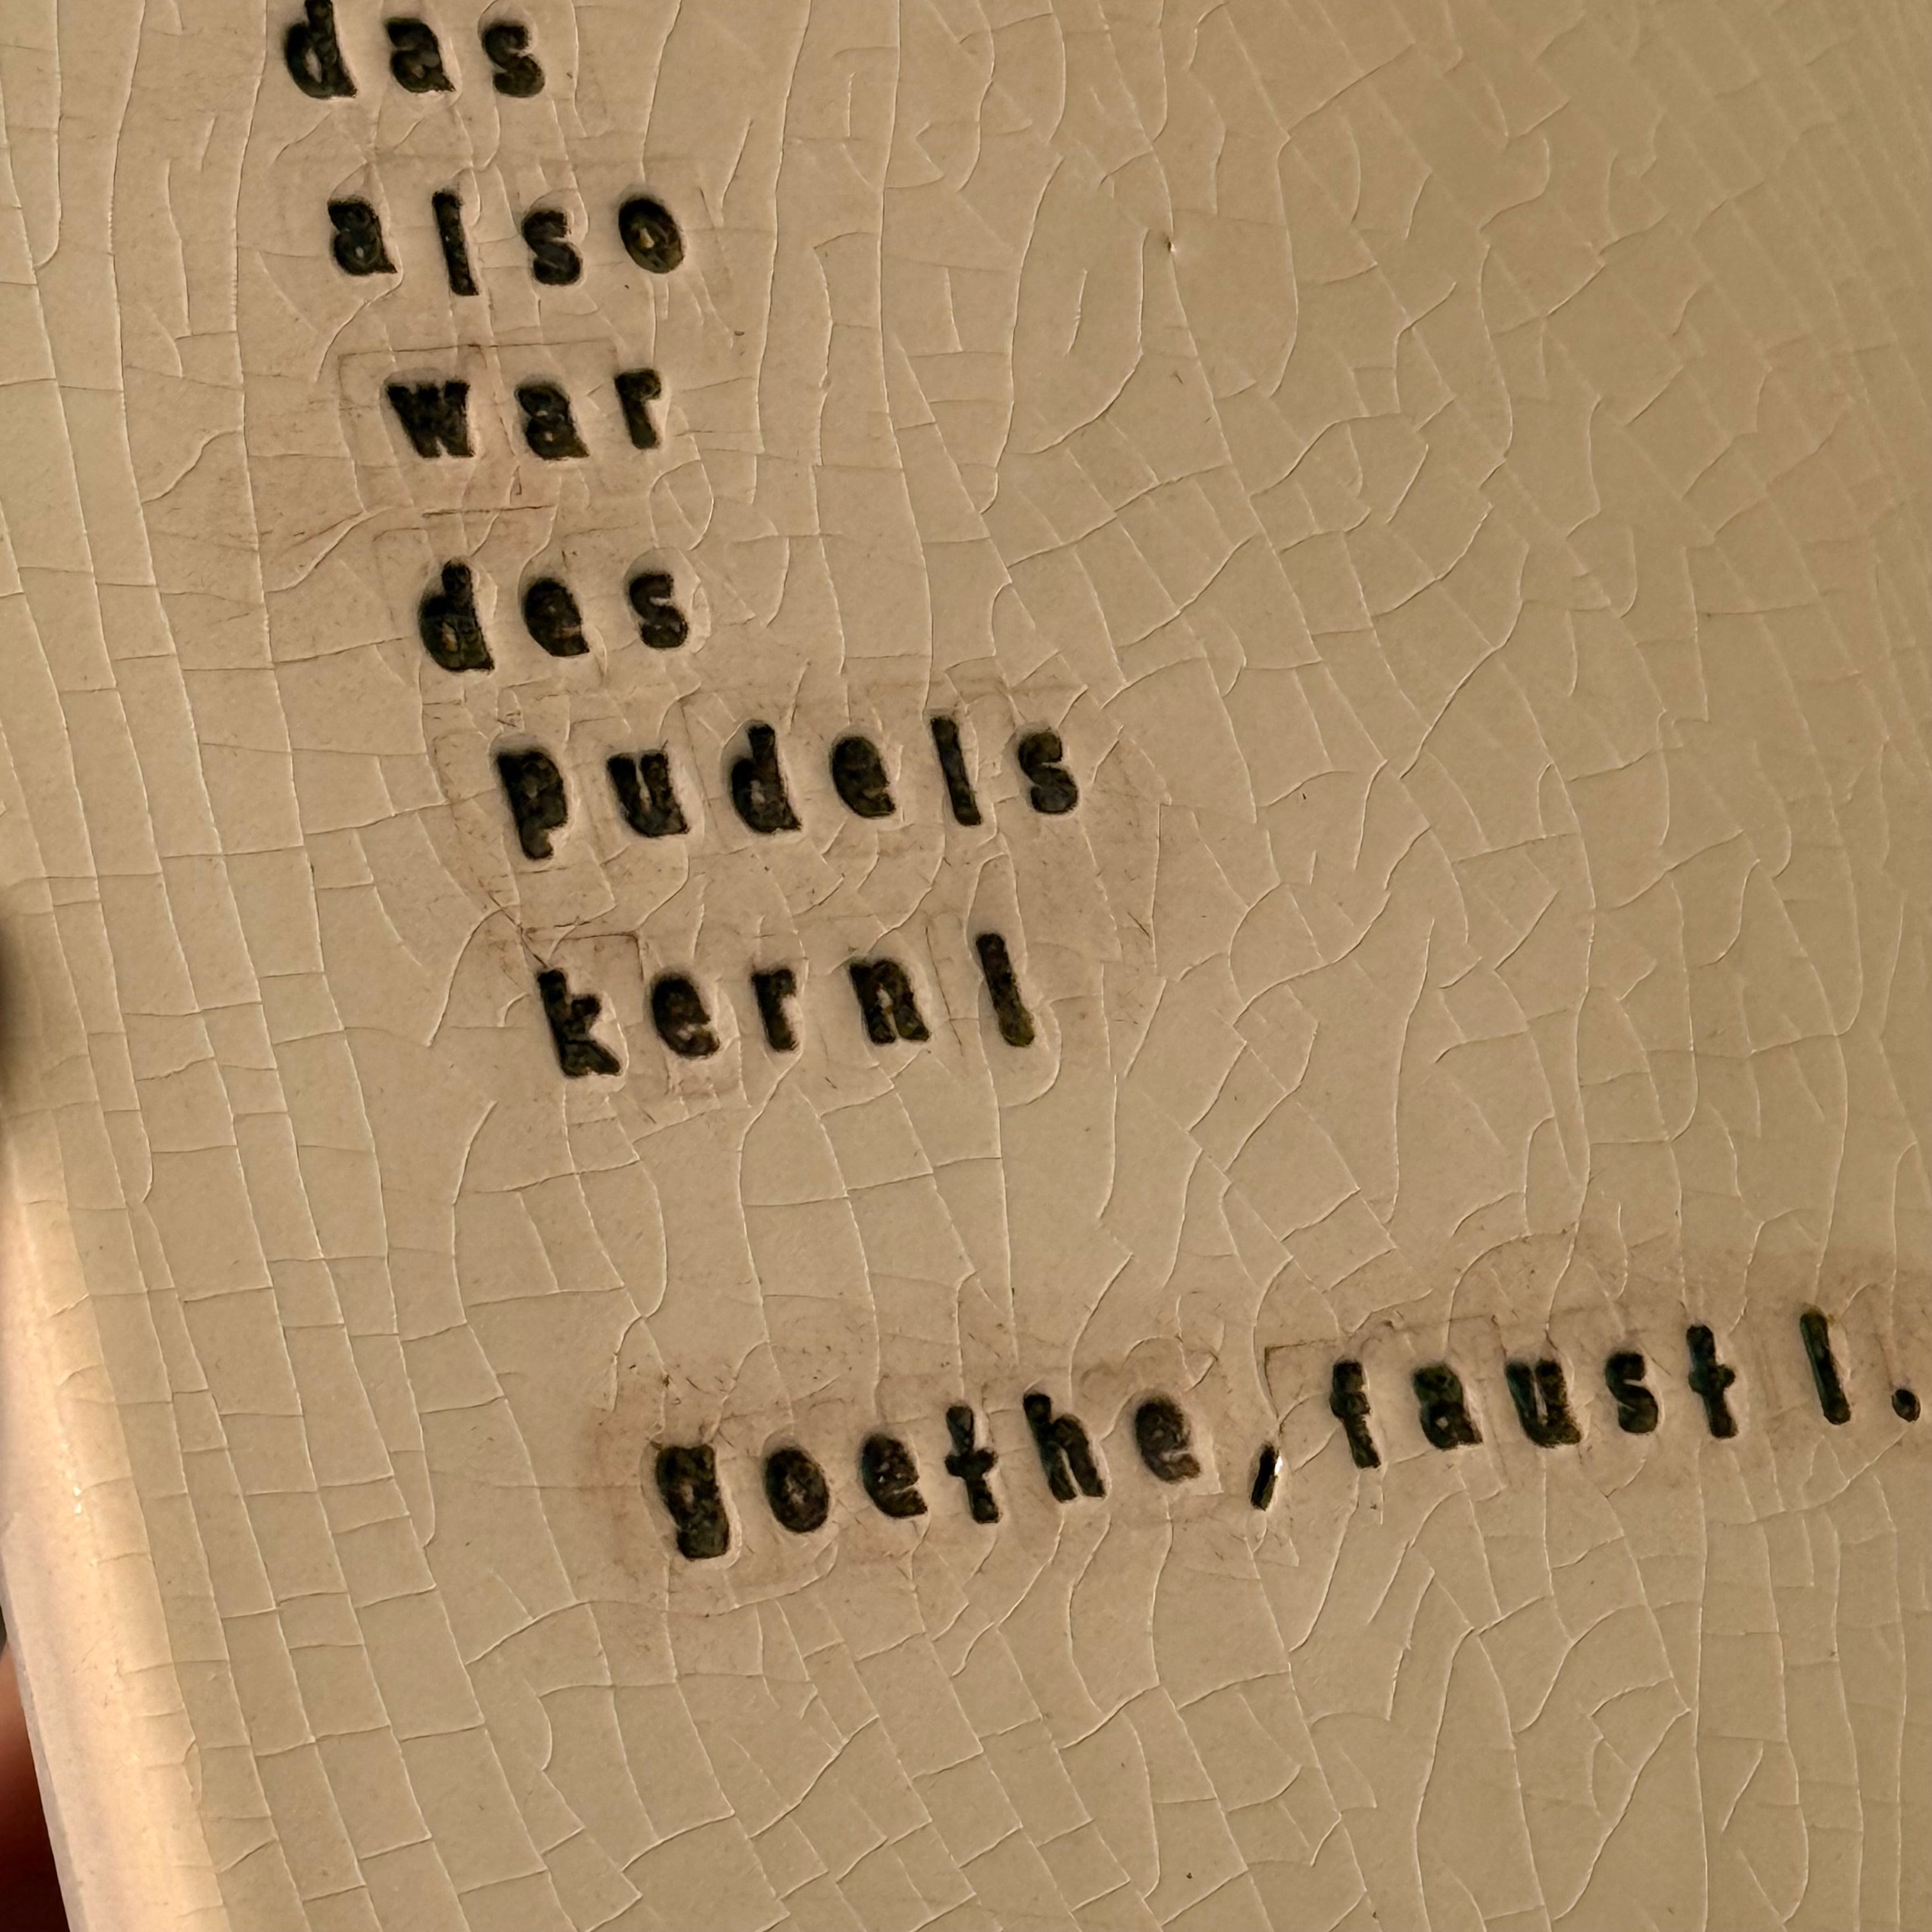 das
also
war
des
pudels
kernl
goethe, faust l.